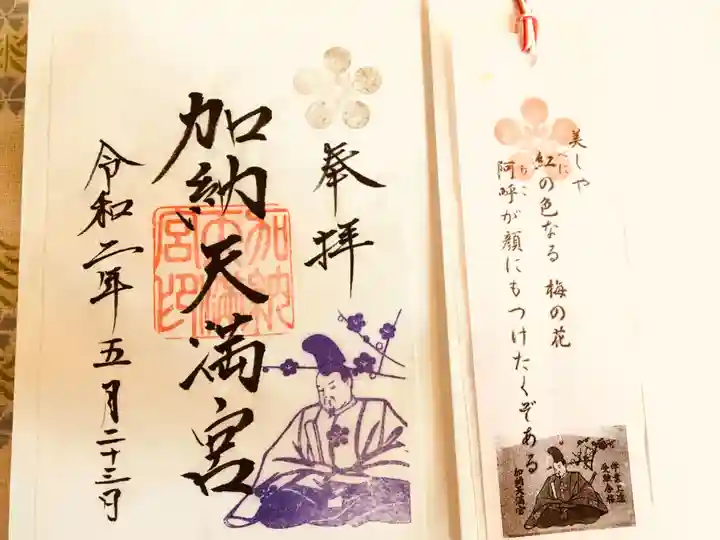 奉拝
加納天満宮
加納天満宮印
令和二年五月二十三日
美しや
紅の色なる 梅の花
べに
阿呼が顔にもつけたくぞある
あこ
学業上達
受験合格
加納天満宮